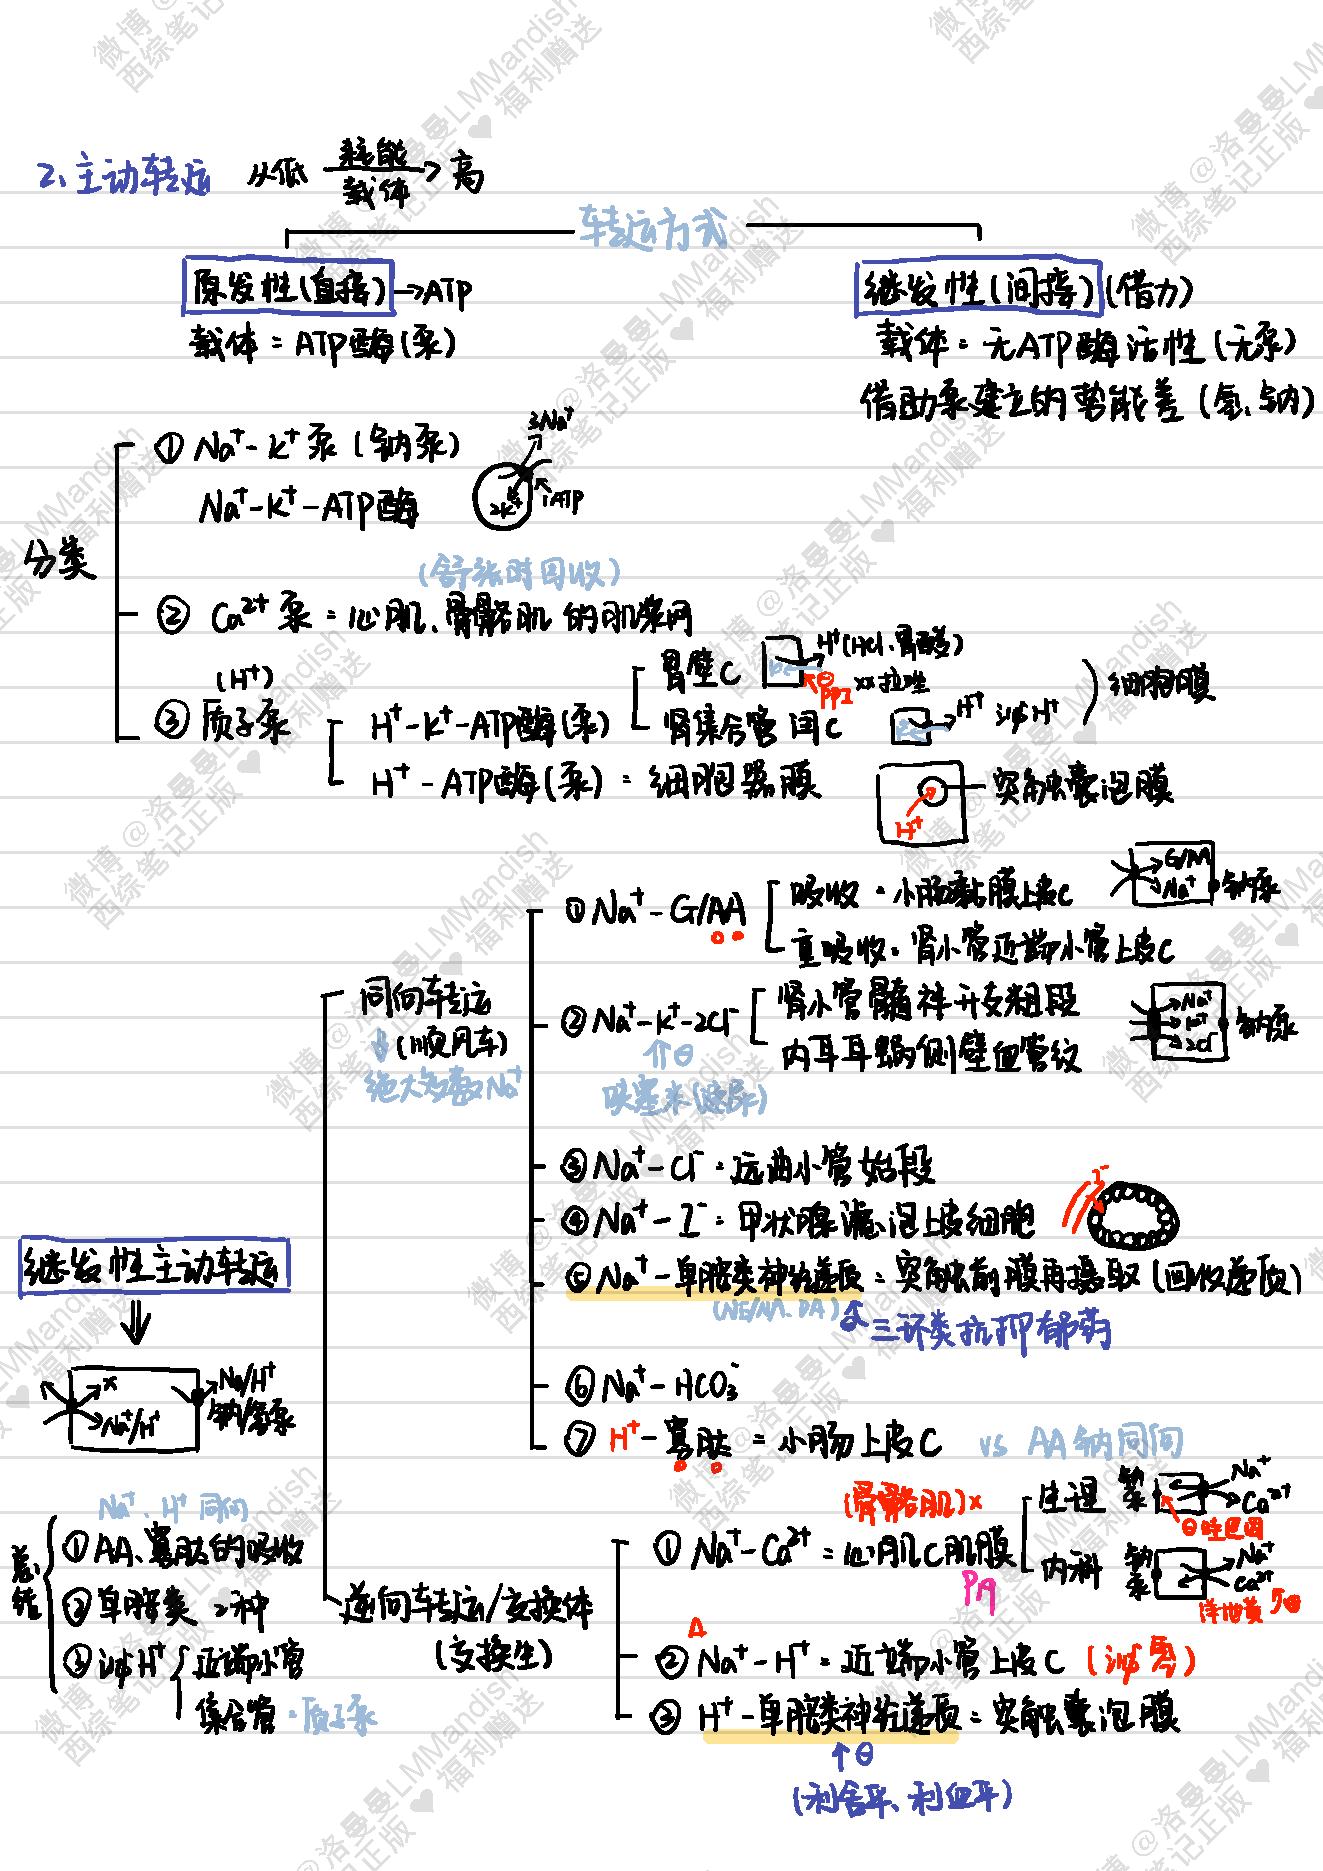 2、主动转运 从低 耗能 载体 → 高
转运方式
原发性(直接) → ATP
载体：ATP酶(泵)
继发性(间接) (借力)
载体：无ATP酶活性(无泵)
借助泵建立的势能差(氢、钠)
分类
① Na⁺-K⁺泵(钠泵)
Na⁺-K⁺-ATP酶
3Na⁺
2K⁺
1ATP
(舒张时回收)
② Ca²⁺泵：心肌、骨骼肌的肌浆网
(H⁺)
③ 质子泵
H⁺-K⁺-ATP酶(泵)
胃壁C
H⁺(HCl、胃酸)
⊖
PPI
xx拉唑
肾集合管闰C
H⁺ 泌H⁺
细胞膜
H⁺-ATP酶(泵)：细胞器膜
H⁺
突触囊泡膜
继发性主动转运
⇓
x
Na⁺/H⁺
Na/H⁺
钠/氢泵
同向转运
↓(顺风车)
绝大多数Na⁺
① Na⁺-G/AA
吸收：小肠黏膜上皮C
重吸收：肾小管近端小管上皮C
G/AA
Na⁺
钠泵
② Na⁺-K⁺-2Cl⁻
肾小管髓袢升支粗段
内耳耳蜗侧壁血管纹
Na⁺
K⁺
2Cl⁻
钠泵
⇑⊖
呋塞米(速尿)
③ Na⁺-Cl⁻：远曲小管始段
④ Na⁺-I⁻：甲状腺滤泡上皮细胞
I⁻
⑤ Na⁺-单胺类神经递质：突触前膜再摄取(回收递质)
(NE/NA、DA)
三环类抗抑郁药
⑥ Na⁺-HCO₃⁻
⑦ H⁺-寡肽：小肠上皮C vs AA钠同向
逆向转运/交换体
(交换生)
(骨骼肌)×
① Na⁺-Ca²⁺：心肌C肌膜
生理 钠泵
Na⁺
Ca²⁺
⊖哇巴因
内科 钠泵
Na⁺
Ca²⁺
洋地黄
② Na⁺-H⁺：近端小管上皮C (泌氢)
③ H⁺-单胺类神经递质：突触囊泡膜
↑⊖
(利舍平、利血平)
总结
Na⁺、H⁺同向
① AA、寡肽的吸收
② 单胺类 2种
③ 泌H⁺
近端小管
集合管：质子泵
微博@洛曼曼LMMandish
西综笔记正版♥福利赠送